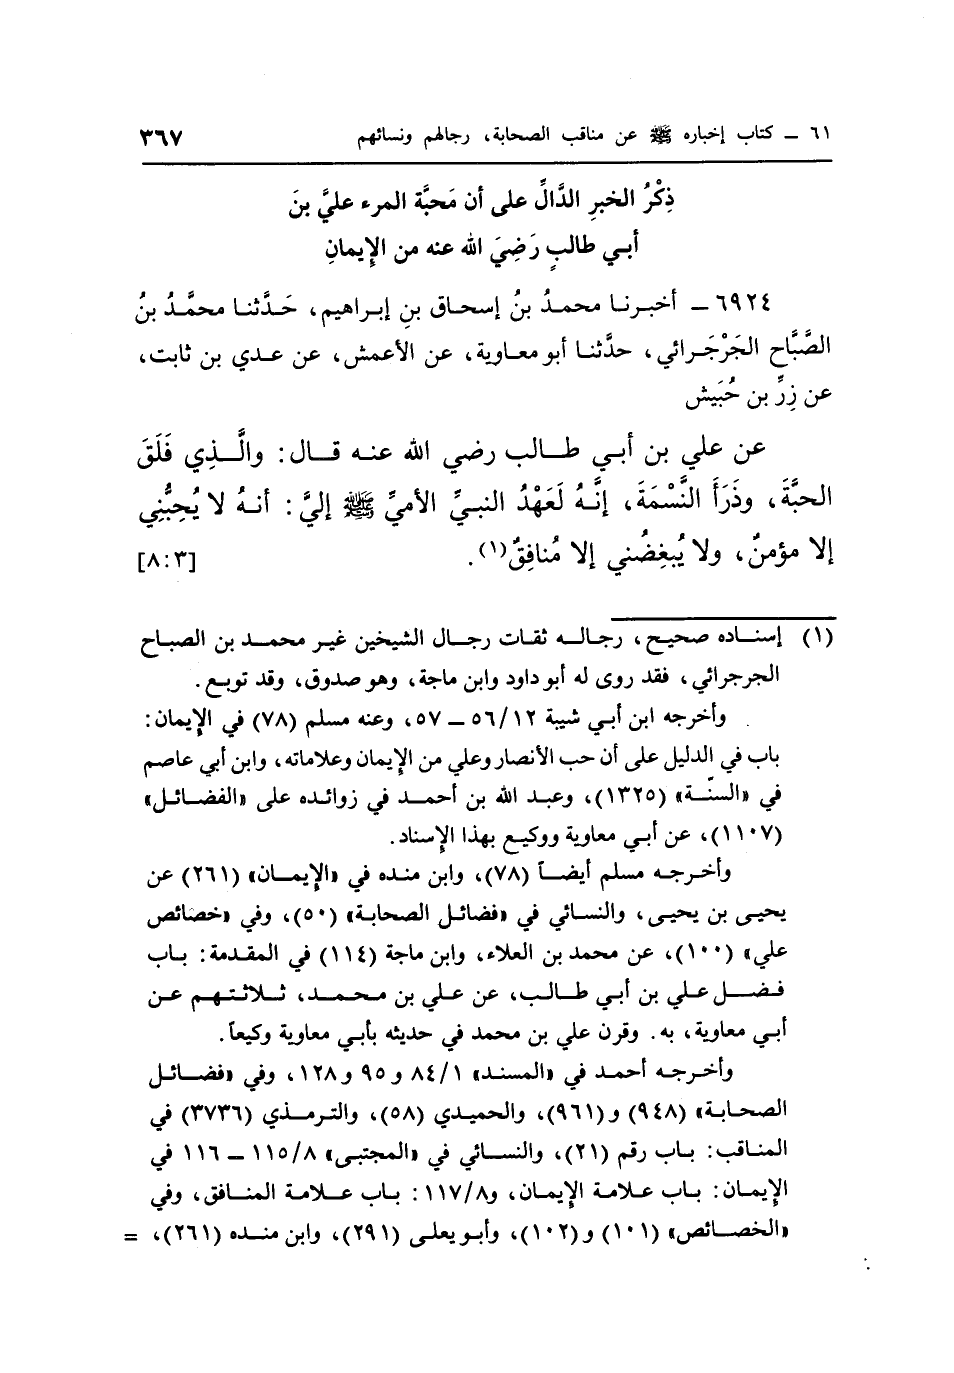 ٦١ ـ كتاب إخباره ﷺ عن مناقب الصحابة، رجالهم ونسائهم ٣٦٧
ذِكْرُ الخبرِ الدَّالِّ على أن مَحبَّة المرء عليَّ بنَ
أبي طالبٍ رَضِيَ الله عنه من الإِيمانِ
٦٩٢٤ ـ أخبرنا محمدُ بنُ إسحاق بنِ إبراهيم، حَدَّثنا محمَّدُ بنُ
الصَّبَّاح الجَرْجَرائي، حدَّثنا أبو معاوية، عن الأعمش، عن عدي بن ثابت،
عن زِرِّ بن حُبَيش
عن علي بن أبي طالب رضي الله عنه قال: والَّذِي فَلَقَ
الحبَّةَ، وذَرَأَ النَّسْمَةَ، إنَّهُ لَعَهْدُ النبيِّ الأميِّ ﷺ إليَّ: أنهُ لا يُحِبُّني
إلا مؤمنٌ، ولا يُبغِضُني إلا مُنافِقٌ(١). [٣:٨]
(١) إسناده صحيح، رجاله ثقات رجال الشيخين غير محمد بن الصباح
الجرجرائي، فقد روى له أبو داود وابن ماجة، وهو صدوق، وقد توبع.
وأخرجه ابن أبي شيبة ٥٦/١٢ ـ ٥٧، وعنه مسلم (٧٨) في الإِيمان:
باب في الدليل على أن حب الأنصار وعلي من الإِيمان وعلاماته، وابن أبي عاصم
في «السنّة» (١٣٢٥)، وعبد الله بن أحمد في زوائده على «الفضائل»
(١١٠٧)، عن أبي معاوية ووكيع بهذا الإِسناد.
وأخرجه مسلم أيضاً (٧٨)، وابن منده في «الإِيمان» (٢٦١) عن
يحيى بن يحيى، والنسائي في «فضائل الصحابة» (٥٠)، وفي «خصائص
علي» (١٠٠)، عن محمد بن العلاء، وابن ماجة (١١٤) في المقدمة: باب
فضل علي بن أبي طالب، عن علي بن محمد، ثلاثتهم عن
أبي معاوية، به. وقرن علي بن محمد في حديثه بأبي معاوية وكيعاً.
وأخرجه أحمد في «المسند» ٨٤/١ و ٩٥ و ١٢٨، وفي «فضائل
الصحابة» (٩٤٨) و (٩٦١)، والحميدي (٥٨)، والترمذي (٣٧٣٦) في
المناقب: باب رقم (٢١)، والنسائي في «المجتبى» ١١٥/٨ ـ ١١٦ في
الإِيمان: باب علامة الإِيمان، و ١١٧/٨: باب علامة المنافق، وفي
«الخصائص» (١٠١) و (١٠٢)، وأبو يعلى (٢٩١)، وابن منده (٢٦١)، =